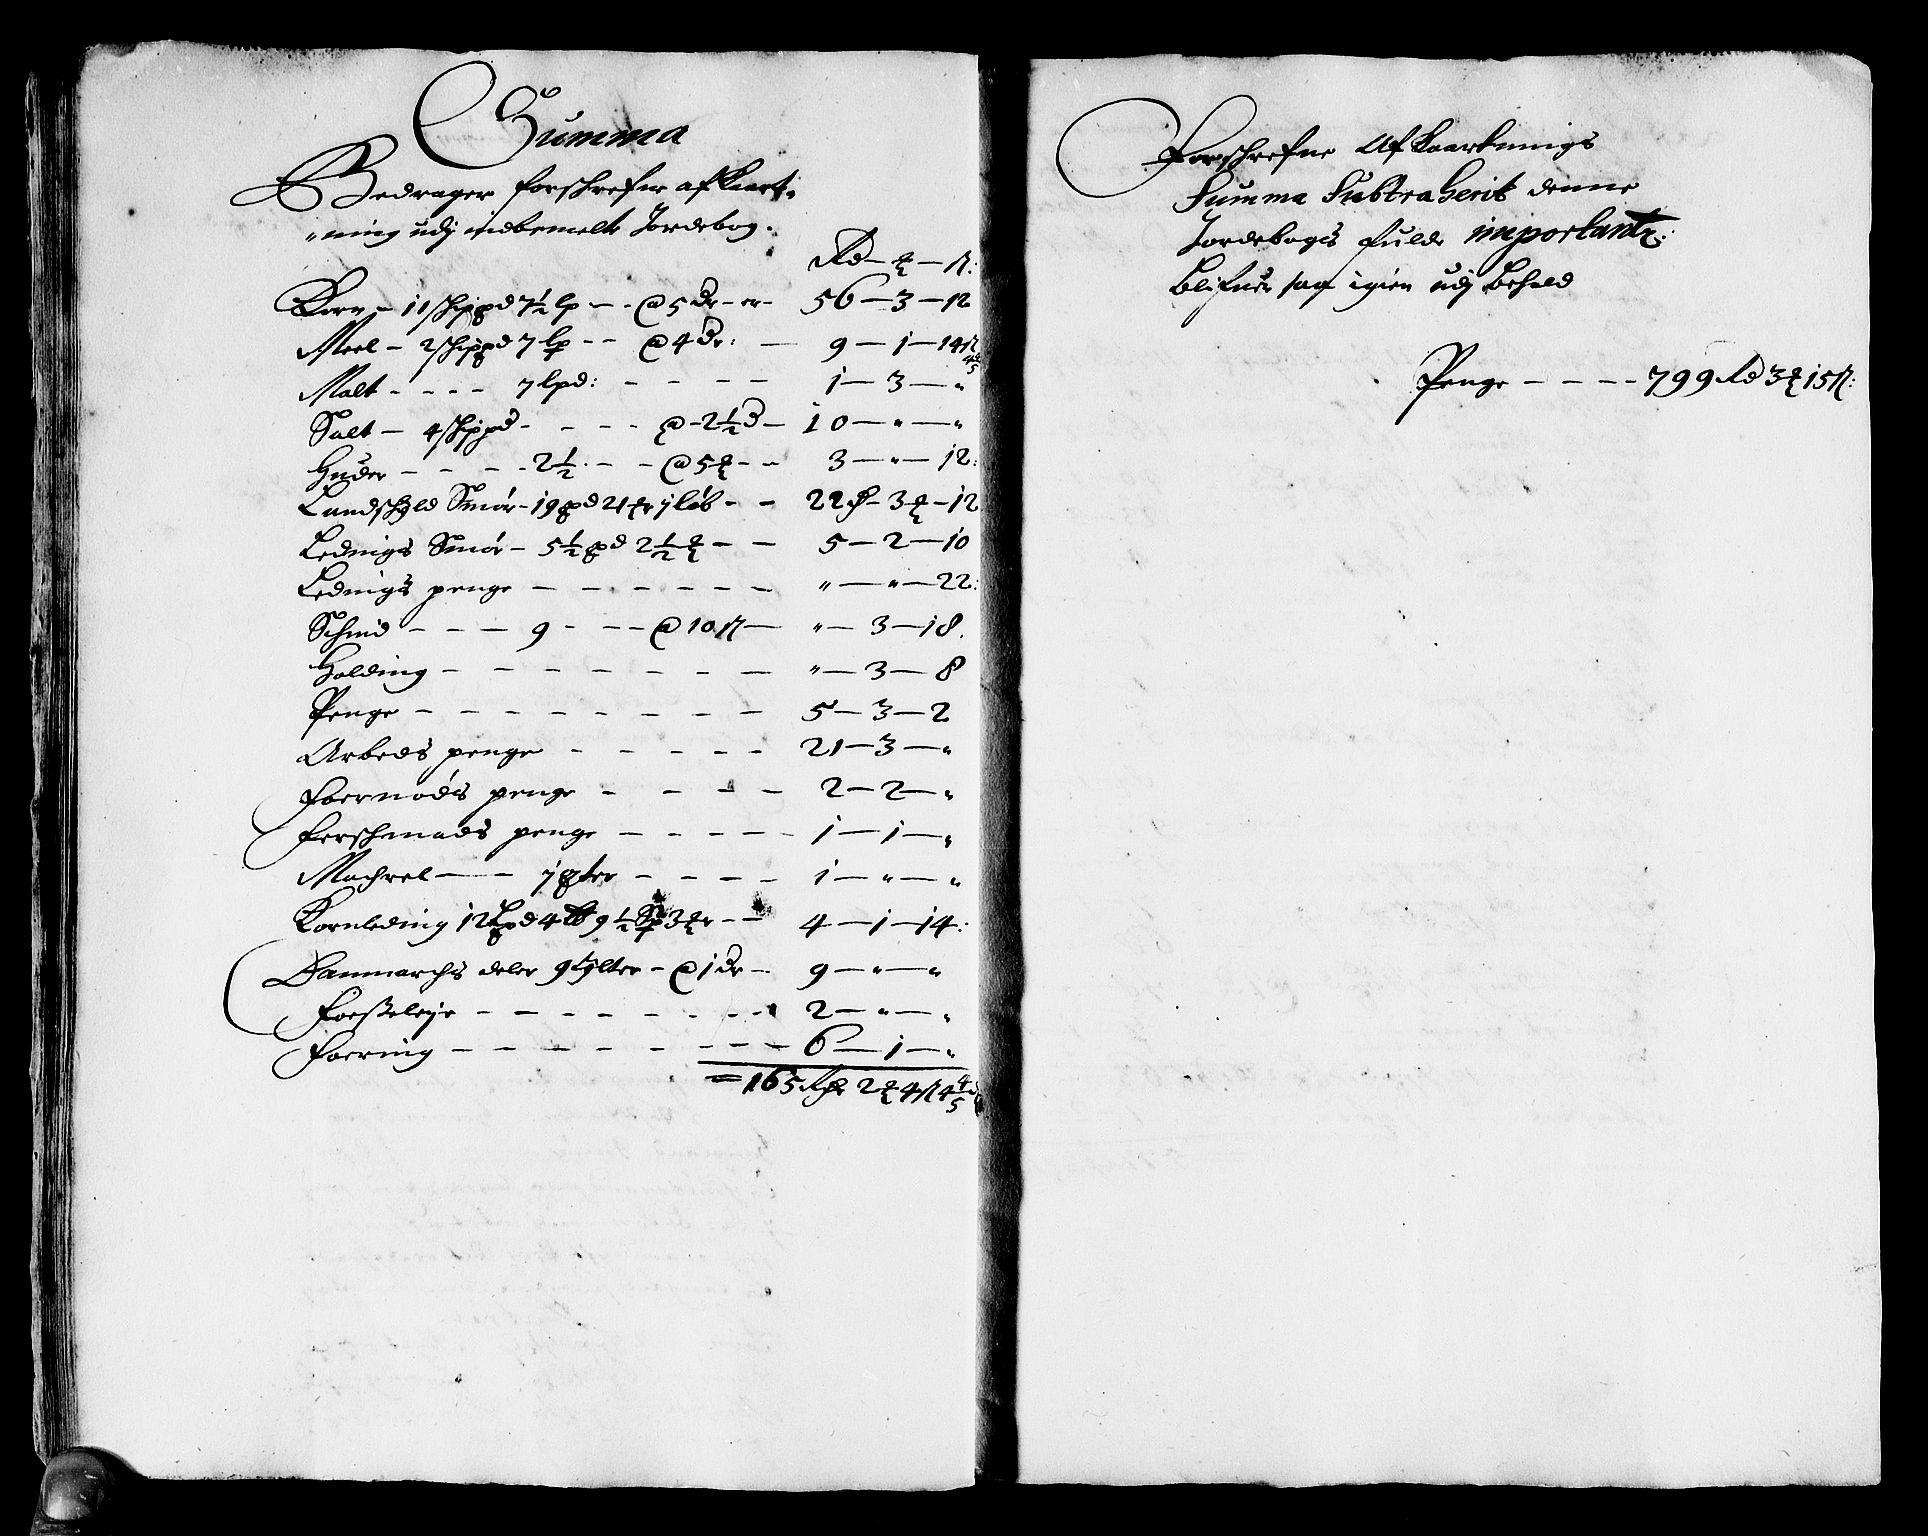 Summa
Bedrager forschrefne afkort¬
ning udj indbemelt Jordebog.
Rd — ₰ — ß:
Korn — 11 schippd 7½ lp — @ 5 Dr — er — 56 — 3 — 12
Meel — 2 schippd 7 lp — @ 4 Dr: — 9 — 1 — 14 ß 4/5 d
Malt — 7 lpd: — 1 — 3 — „
Salt — 4 schippd — @ 2½ d — 10 — „ — „
Huder — 2½ — @ 5 — 3 — „ — 12:
Landschyld Smør — 19 pd 21 j løb — 22 — 3 — 12
Lednigs Smør — 5½ pd 2½ — 5 — 2 — 10
Lednigs penge — „ — „ — 22:
Schind — 9 — @ 10 ß — „ — 3 — 18.
Holding — „ — 3 — 8
Penge — 5 — 3 — 2
Arbeds penge — 21 — 3 — „
Foernøds penge — 2 — 2 — „
Ferschmads penge — 1 — 1 — „
Machrel — 1 — „ — „
Kornleding 12 Lpd 4 9½ Sp 3 — 4 — 1 — 14:
Danmarchs deler 9 tylter — @ 1 Dr — 9 — „ — „
Foesseleye — 2 — „ — „
Foering — 6 — 1 — „
= 165 Rdr 2 4 ß 4 4/5 d
Forschrefne Afkaartnings
Summa Subtraherit denne
Jordebogs fulde importantz:
blifuer saa igien udj behold
Penge — 799 Rd 3 15 ß: